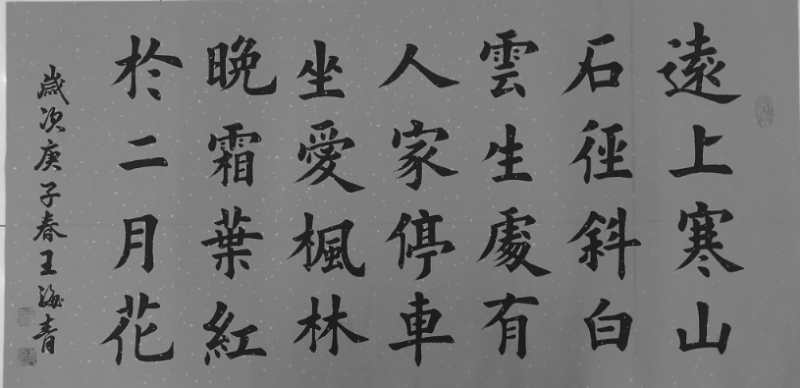 遠上寒山
石徑斜白
雲生處有
人家停車
坐愛楓林
晚霜葉紅
於二月花
歲次庚子春王海青